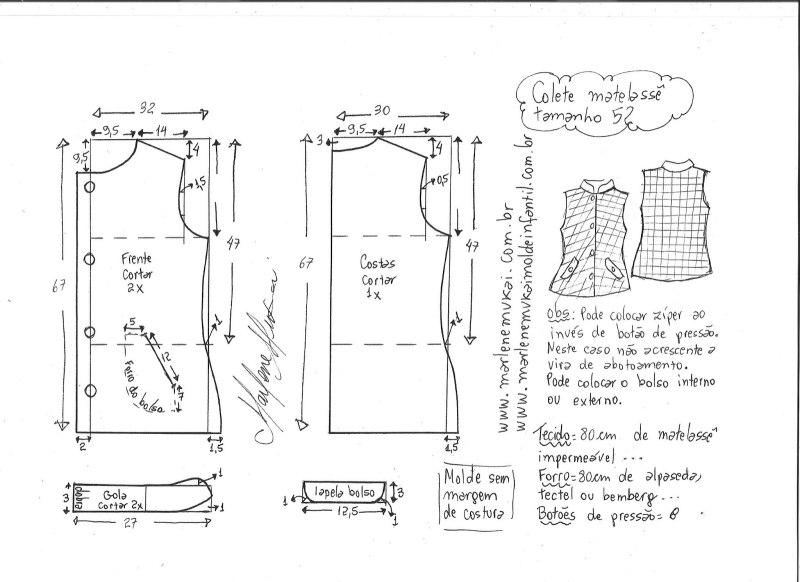 Colete matelassê
tamanho 52
32
9,5
14
9,5
4
1,5
67
47
Frente
Cortar
2x
1
5
12
7
Feio do bolso
2
1,5
30
9,5
14
3
4
0,5
67
47
Costas
Cortar
1x
1
1,5
www.marlenemukai.com.br
www.marlenemukaimoldeinfantil.com.br
Marlene Mukai
obs: Pode colocar zíper ao
invés de botão de pressão.
Neste caso não acrescente a
vira de abotoamento.
Pode colocar o bolso interno
ou externo.
Tecido=80cm de matelassê
impermeável ...
Forro=80cm de alpaseda,
tectel ou bemberg...
Botões de pressão= 6
3
Gola
cortar 2x
1
1
27
lapela bolso
3
1
1
12,5
Molde sem
margem
de costura